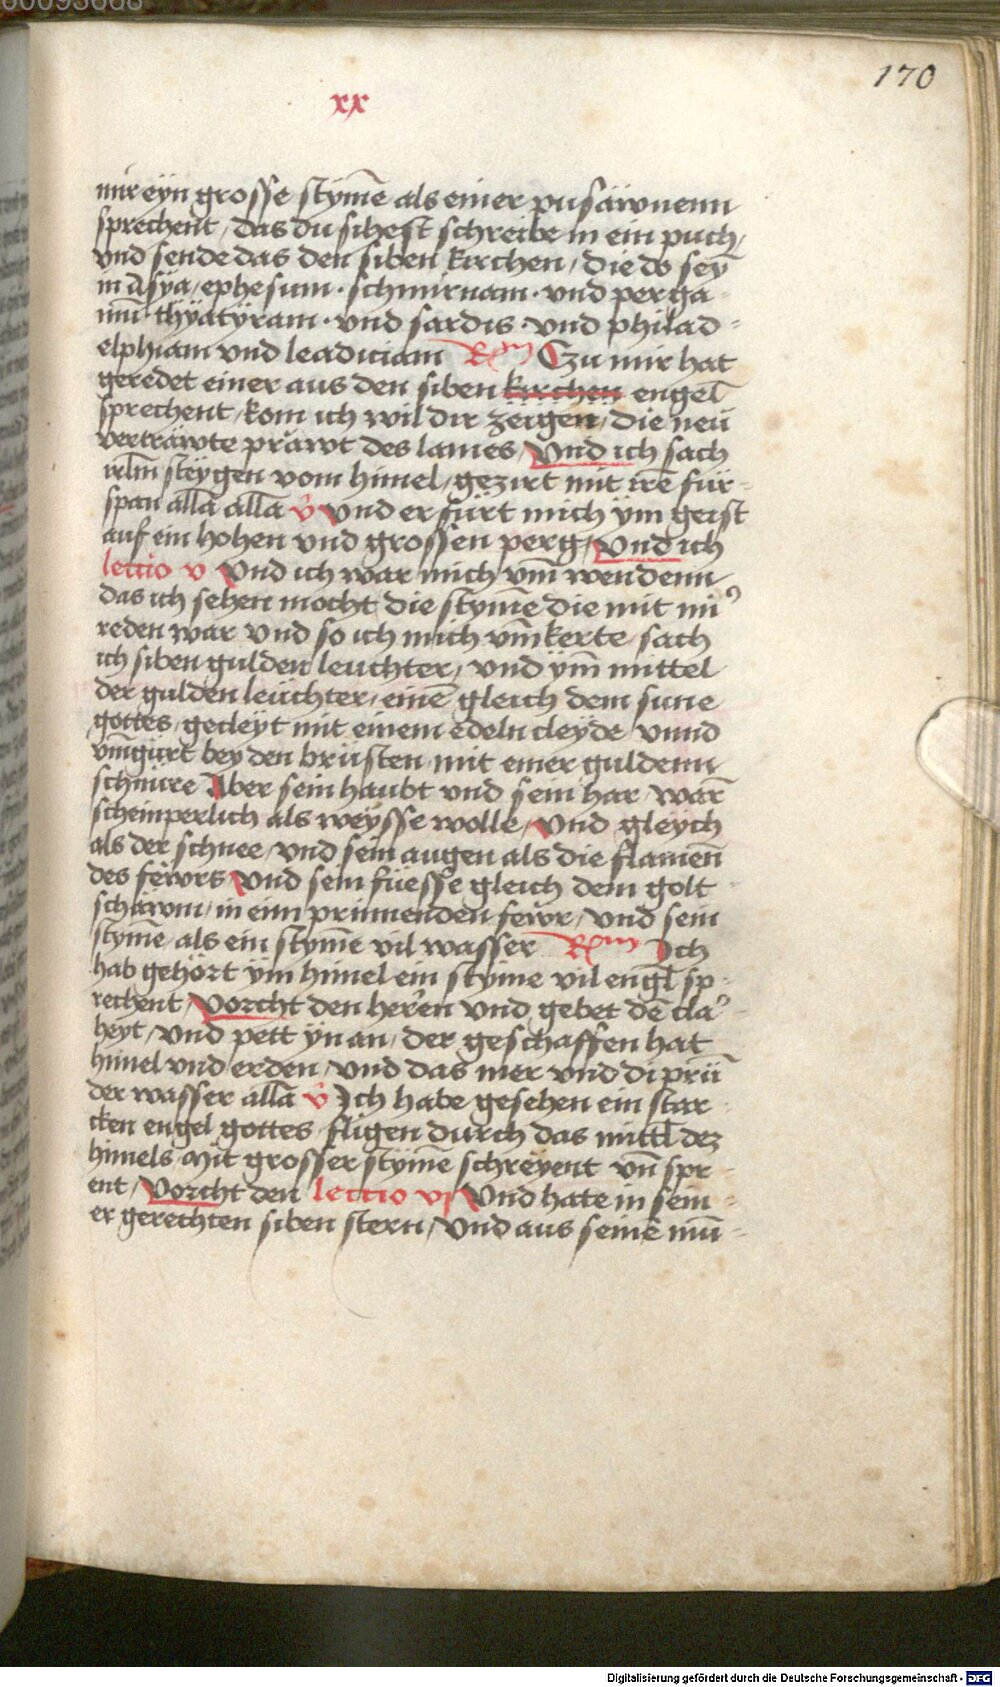 00095668
170
xx
mir eyn grosse stym̄e als einer pusäwnenn
sprechent / das du sihest schreibe in ein puch /
vnd sende das den siben kirchen / die do seȳ
in Asya / ephesum · schmirnam · vnd perga-
mū · thyatyram · vnd sardis · vnd philad=
elphiam vnd leadiciam R Czu mir hat
geredet einer aus den siben kirchen engel̄
sprechent / kom ich wil dir zeigen / die neü
verträwte präwt des lames / Vnd ich sach
irlm̄ steygen vom himel / gezirt mit irē für-
span all̄a all̄a v̊ vnd er fürt mich ym geist
auf ein hohen vnd grossen perg / Vnd ich
lectio v Vnd ich war mich vm̄ wendenn
das ich sehen mocht die stym̄e die mit mi᾽
reden war vnd so ich mich vm̄kerte / sach
ich siben gulden leuchter / vnd ym̄ mittel
der gulden leüchter / einē gleich dem sune
gottes / gecleyt mit einem edeln cleyde vnnd
vm̄gürt bey den brüsten mit einer guldenn
schnüre Aber sein haubt vnd sein har / war̄
scheinperlich als weysse wolle / Vnd gleych
als der schnee / vnd sein augen als die flamen̄
des fewrs / Vnd sein füesse gleich dem golt-
schäwm / in eim prinnenden fewr / vnd sein
stym̄e / als ein stym̄e vil wasser R Ich
hab gehört ym himel ein styme vil engl̄ sp-
rechent / Vorcht den herren vnd gebet dē cla᾽-
heyt / vnd pett yn an / der geschaffen hat
himel vnd erden / vnd das mer vnd di prǖ
der wasser all̄a v̊ Ich habe gesehen ein star-
cken engel gottes fligen durch das mittl̄ dez
himels Mit grosser stym̄e schreyent vn̄ spr-
ent / Vorcht den lectio vj Vnd hate in sein-
er gerechten siben stern / Vnd aus seinē mū-
Digitalisierung gefördert durch die Deutsche Forschungsgemeinschaft - DFG